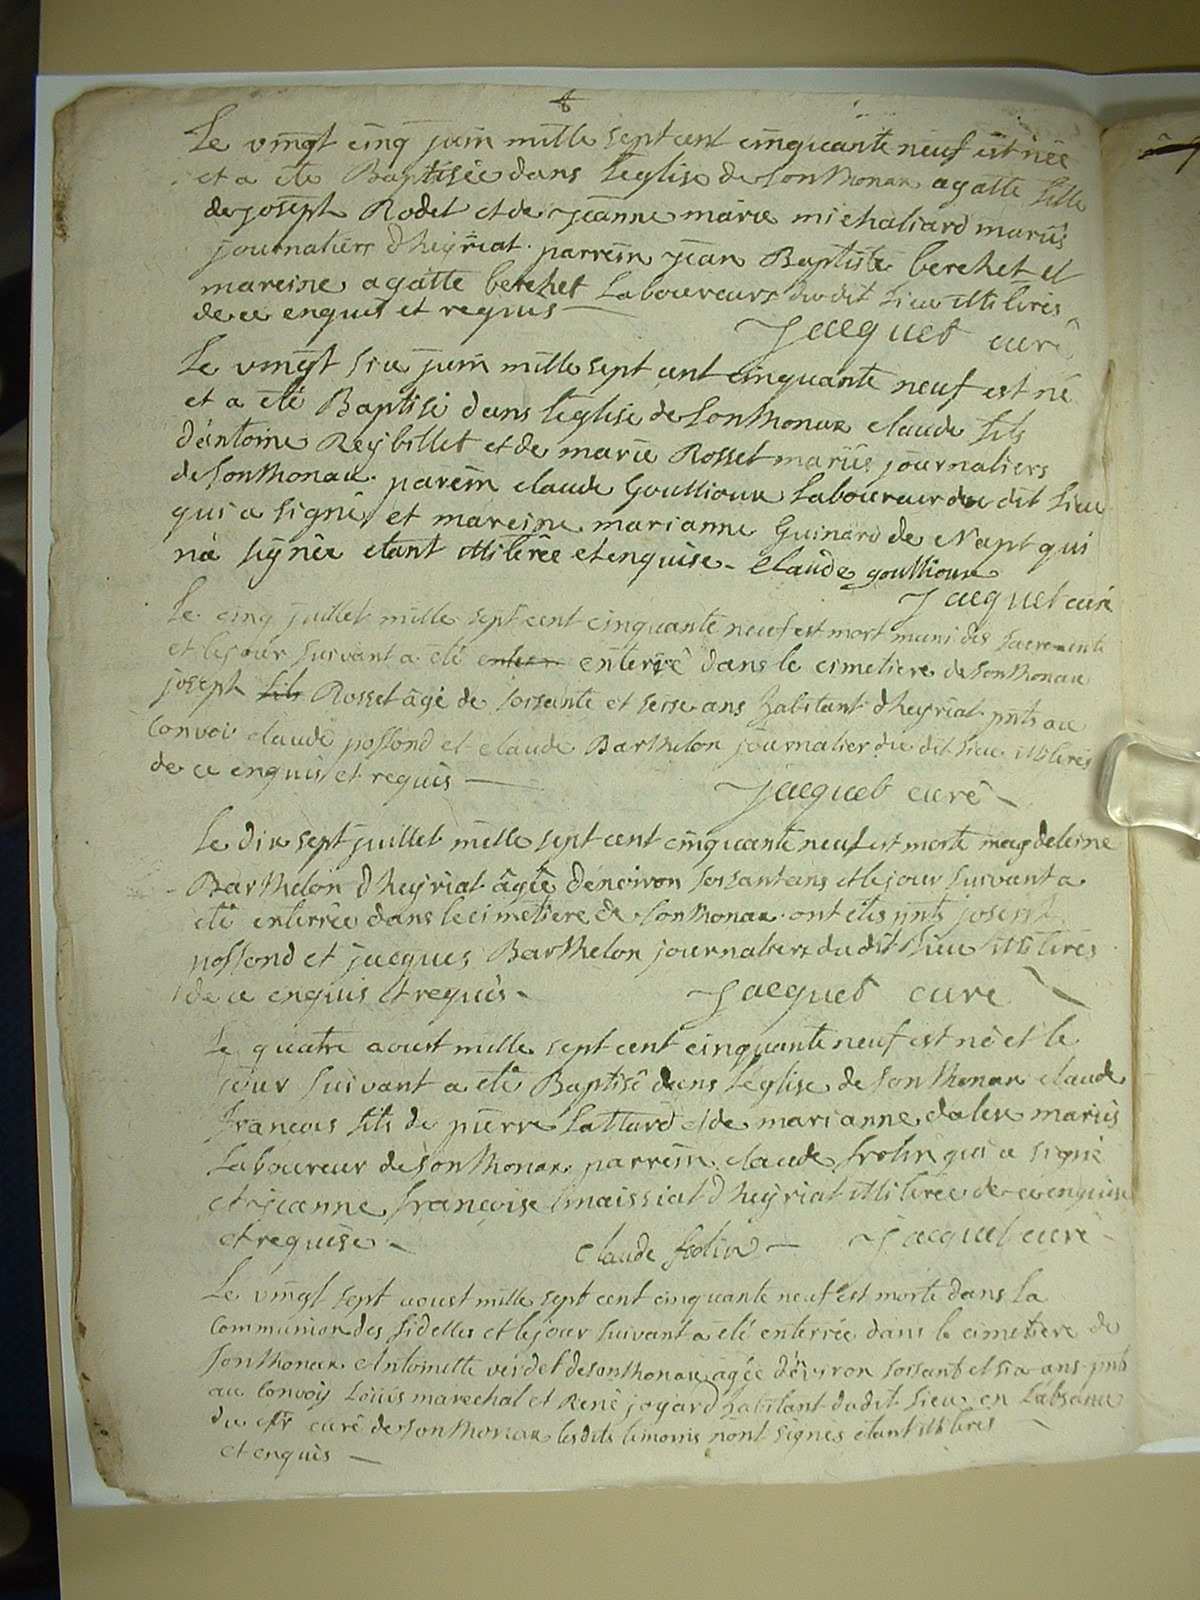 Le vingt cinq juin mille sept cent cinquante neuf est née
et a été Baptisée dans l'eglise de Sonthonax agatte fille
de joseph Rodet et de jeanne marie michaliard mariés
journaliers d'heyriat. parrein jean Baptiste berchet et
mareine agatte berchet Laboureurs du dit Lieu illiterés
de ce enquis et requis
Jacquet curé
Le vingt six juin mille sept cent cinquante neuf est né
et a été Baptisé dans l'eglise de Sonthonax claude fils
d'antoine Reybillet et de marie Rosset mariés journaliers
de Sonthonax. parein claude Gouttioux Laboureur du dit Lieu
qui a signé, et mareine marianne Guinard de Napt qui
n'a signée etant illiterée et enquise - Claude gouttioux
Jacquet curé
Le cinq juillet mille sept cent cinquante neuf est mort muni des sacrements
et le jour suivant a été enterré dans le cimetiere de Sonthonax
joseph fils Rosset âgé de soisante et seise ans habitant d'heyriat. pnts au
convoi claude possond et claude Barthelon journalier du dit Lieu illiterés
de ce enquis et requis
Jacquet curé
Le dix sept juillet mille sept cent cinquante neuf est morte magdeleine
Barthelon d'heyriat âgée d'environ soisant ans et le jour suivant a
eté enterrée dans le cimetiere de Sonthonax. ont étés pnts joseph
possond et jacques Barthelon journaliers du dit Lieu illiterés
de ce enquis et requis -
Jacquet curé
Le quatre aoust mille sept cent cinquante neuf est né et le
jour suivant a eté Baptisé dans l'eglise de Sonthonax claude
francois fils de pierre Lattard et de marianne mariés
Laboureur de Sonthonax parrein claude frolin qui a signé
et jeanne françoise maissiat d'heyriat illiterée de ce enquise
et requise -
Claude frolin - Jacquet curé
Le vingt sept aoust mille sept cent cinquante neuf est morte dans la
communion des fidelles et le jour suivant a été enterrée dans le cimetiere de
Sonthonax Antoinette verdet de Sonthonax agée d'environ soisant et six ans. pnts
au convoy Loüis marechal et René joyard habitant du dit Lieu en L'absence
du Sr curé de Sonthonax les dits temoins n'ont signés etant illiteres
et enquis